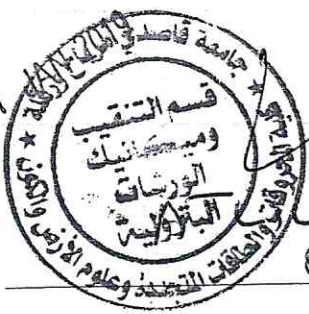 جامعة قاصدي مرباح ورقلة
قسم التنقيب
وميكانيك
الورشات
البترولية
كلية المحروقات والطاقات المتجددة وعلوم الأرض والكون